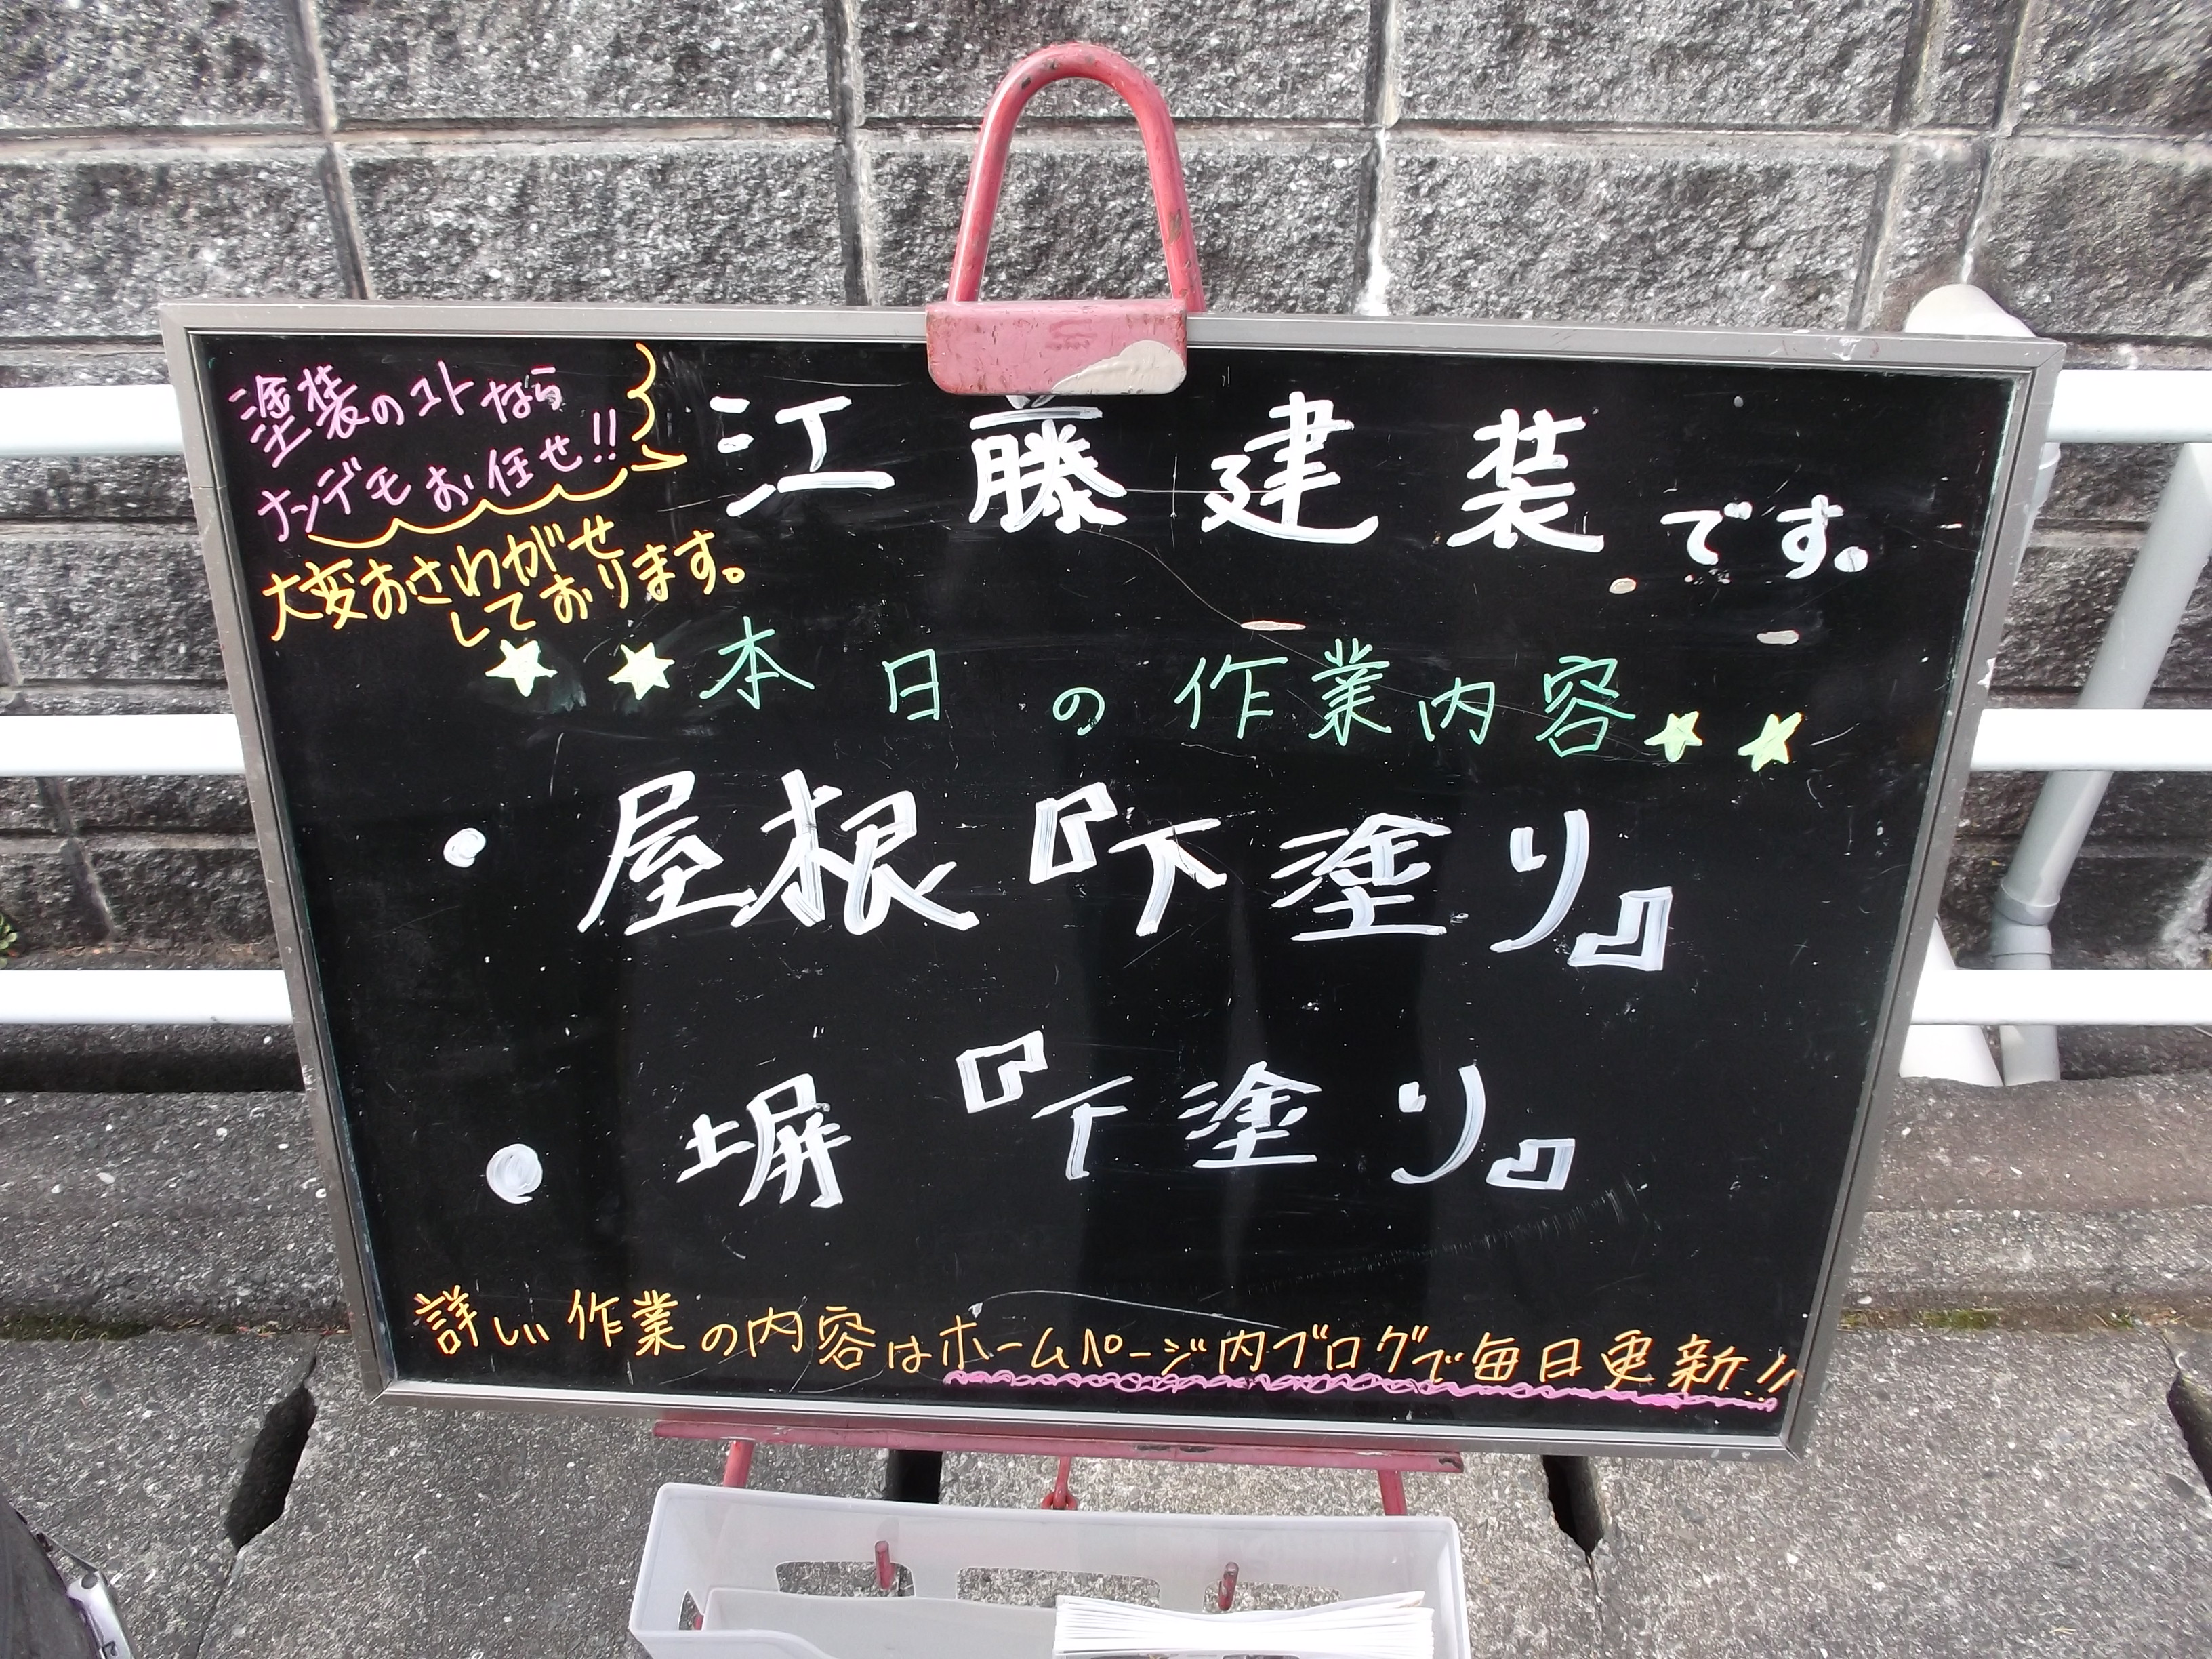 塗装のコトなら
ナンデモお任せ!!
江藤建装です。
大変おさわがせ
しております。
★★本日の作業内容★★
● 屋根『下塗り』
● 塀『下塗り』
詳しい作業の内容はホームページ内ブログで毎日更新!!